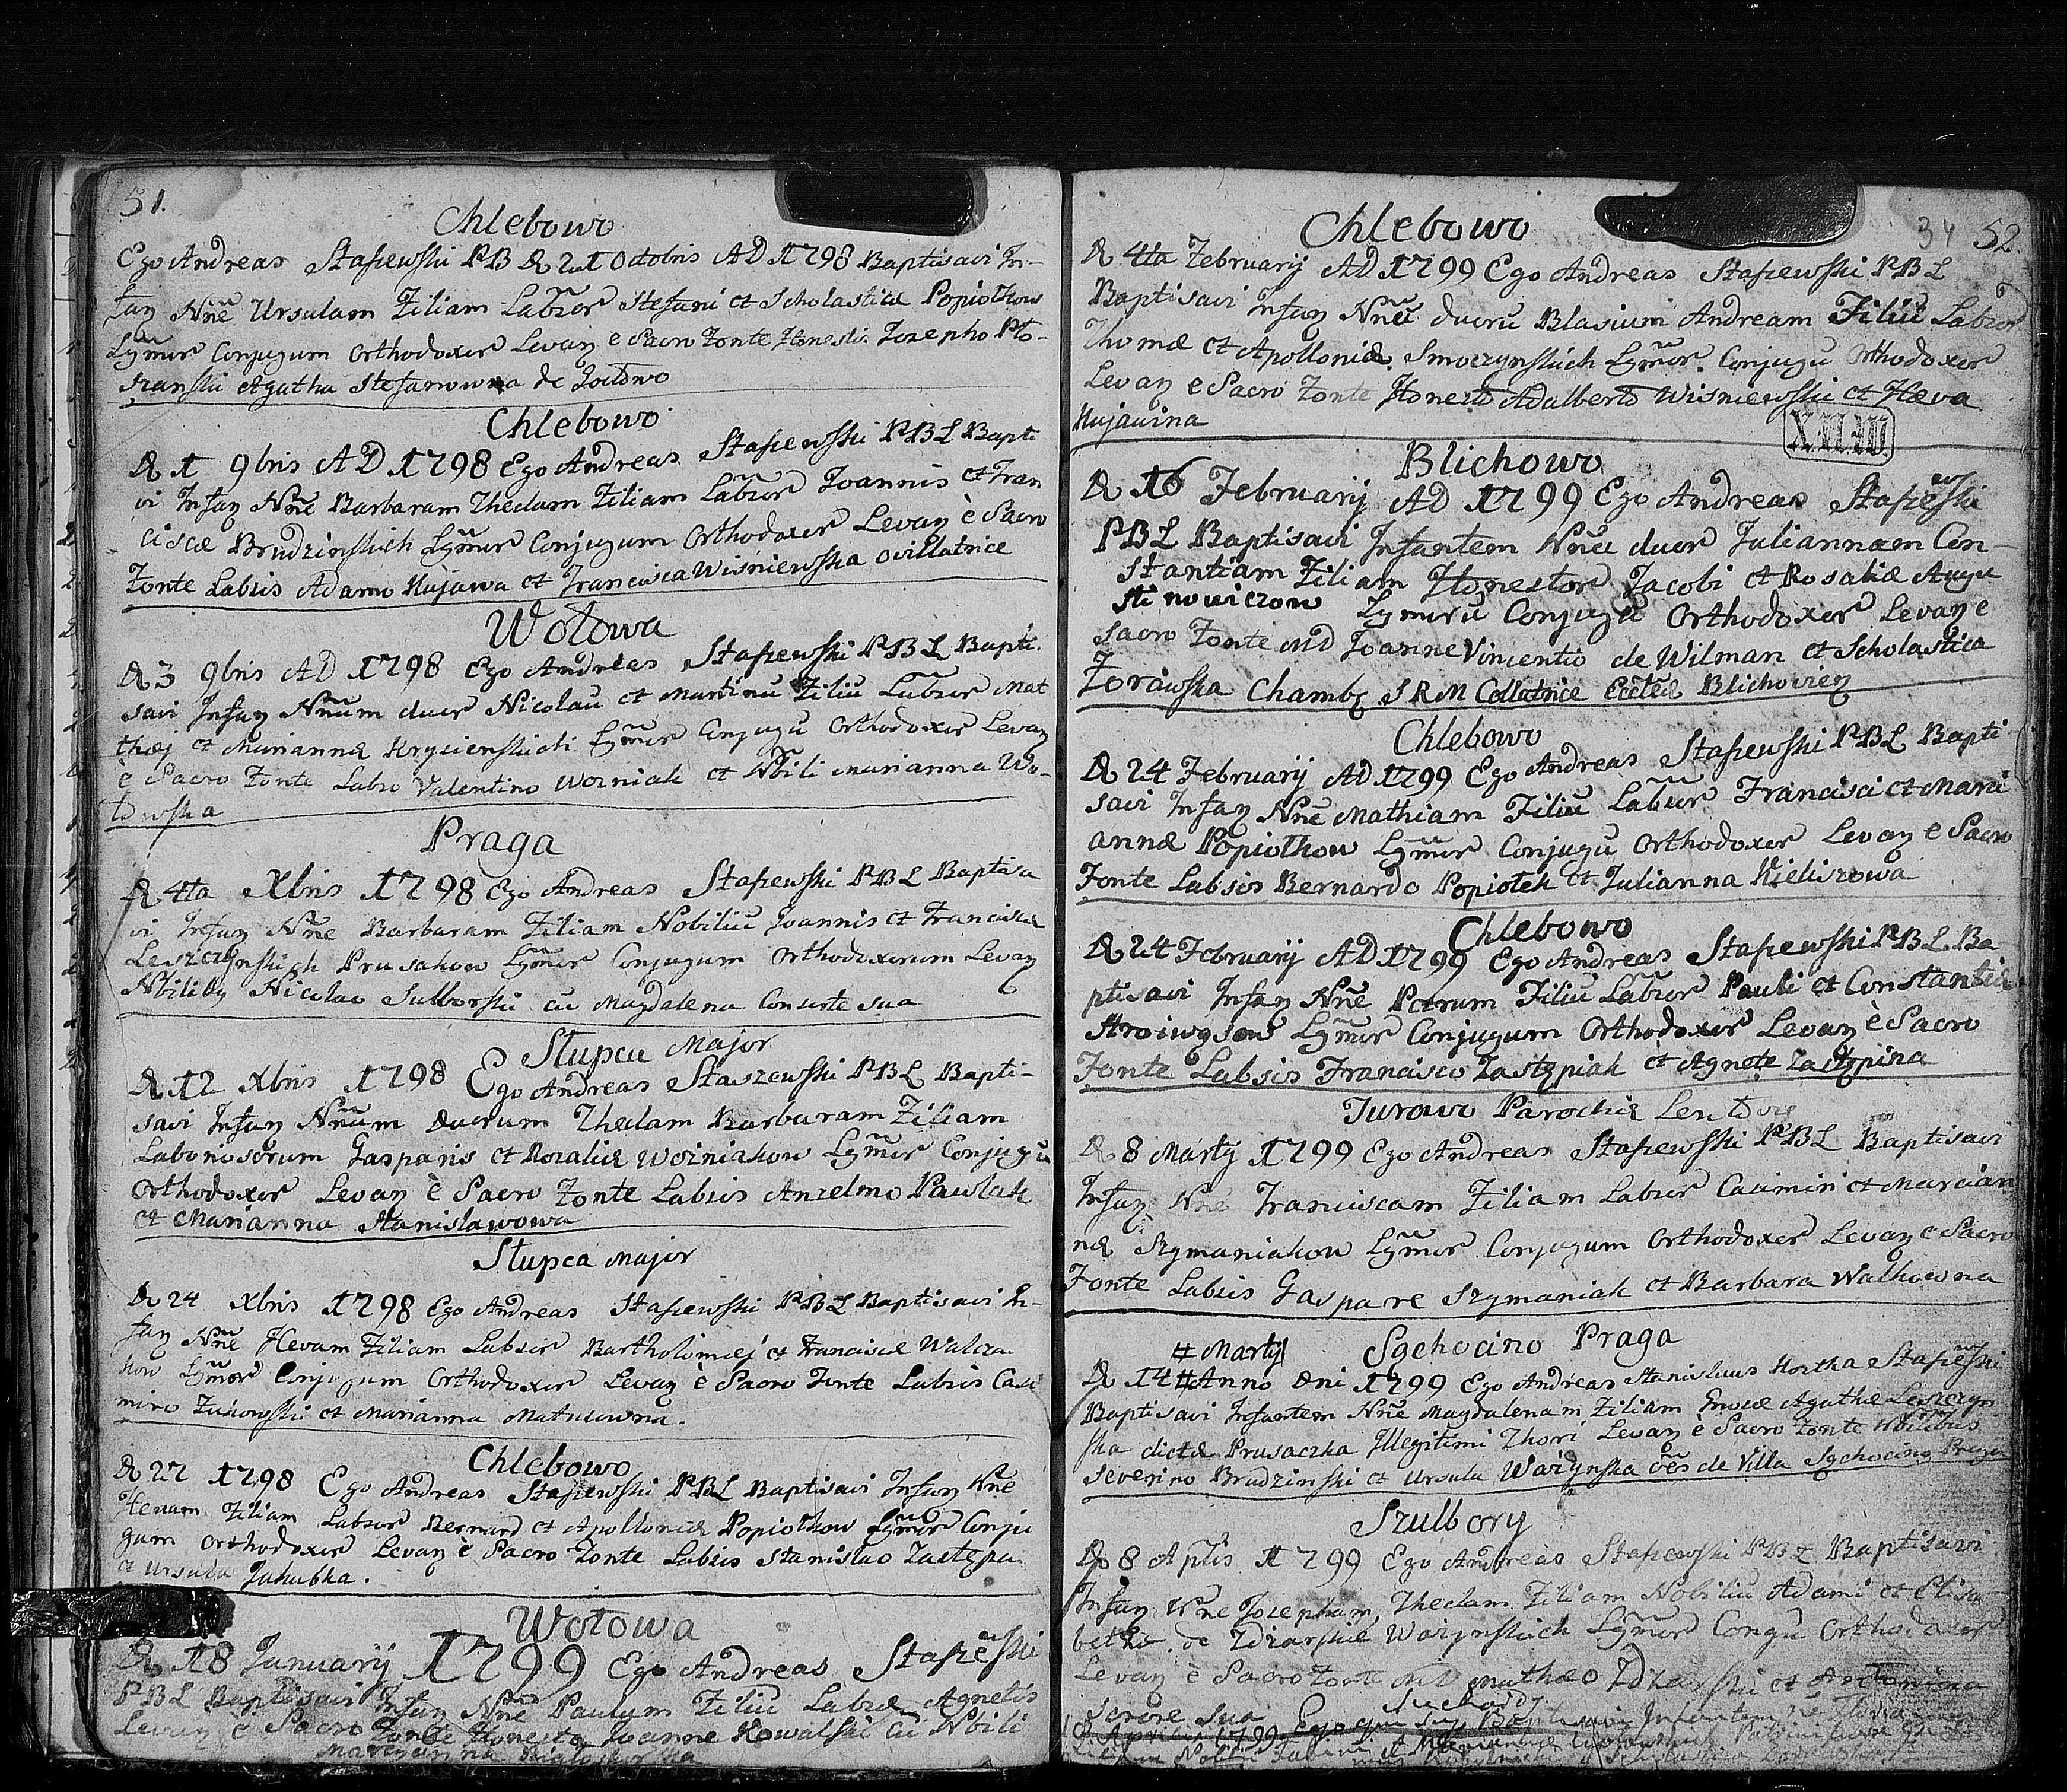 51.
Chlebowo
Ego Andreas Staszewski PB D 21 Octobris AD 1798 Baptisavi In-
fan Nñe Ursulam Filiam Labsor Stefani et Scholasticæ Popiołkow
Lgmor Conjugum Orthodoxor Levan e Sacro Fonte Honestis Josepho
szanski Agatha Stefanowna de
Chlebowo
D 1 9bris AD 1798 Ego Andreas Staszewski PBL Bapti
vi Infan Nñe Barbaram Theclam Filiam Labsor Joannis et Fran
ciscæ Brudzinskich Lgmor Conjugum Orthodoxor Levan è Sacro
Fonte Labsis Adamo Kujawa et Francisca Wisniewska ovillatrice
Wołowa
D 3 9bris AD 1798 Ego Andreas Staszewski PBL Bapti
savi Infan Nñum duor Nicolau et Martinu Filiu Labsor Mat
thæj et Mariannæ Krysienskich Lgmor Conjugu Orthodoxor Levan
è Sacro Fonte Labso Valentino Wozniak et Nbili Marianna Wo-
łowska
Praga
D 4ta Xbris 1798 Ego Andreas Staszewski PBL Baptisa
vi Infan Nñe Barbaram Filiam Nobiliu Joannis et Franciscæ
Leszczynskich Prusakow Lgmor Conjugum Orthodoxorum Levan
Nbilibq Nicolao Sulborski cu Magdalena Consorte sua
Słupca Major
D 12 Xbris 1798 Ego Andreas Staszewski PBL Bapti-
savi Infan Nñum Duorum Theclam Barbaram Filiam
Laboriosorum Gasparis et Rozaliæ Wozniakow Lgmor Conjugu
Orthodoxor Levan è Sacro Fonte Labsis Anzelmo Pawlak
et Marianna Stanislawowa
Słupca Major
D 24 Xbris 1798 Ego Andreas Staszewski PBL Baptisavi In-
fan Nñe Hevam Filiam Labsor Bartholomiej et Franciscæ Walcza
kow Lgmor Conjugum Orthodoxor Levan è Sacro Fonte Labsis Casi
miro Zukowski et Marianna
Chlebowo
D 27 1798 Ego Andreas Staszewski PBL Baptisavi Infan Nñe
Hevam Filiam Labsor Bernard et Apolloniæ Popiołkow Lgmor Conju
gum Orthodoxor Levan è Sacro Fonte Labsis Stanislao Zastępa
et Ursula Jakubka.
Wołowa
D 18 January 1799 Ego Andreas Staszewski
PBL Baptisavi Infan Nñe Paulum Filiu Labsæ Agnetis
Levan è Sacro Fonte Honesto Joanne Kowalski cu Nbili
34 52
Chlebowo
D 4ta February AD 1799 Ego Andreas Staszewski PBL
Baptisavi Infan Nñu duoru Blasium Andream Filiu Labsor
Thomæ et Apolloniæ Smoczynskich Lgmor Conjugu Orthodoxor
Levan e Sacro Fonte Honesto Adalberto Wisniewski et Hæva
Kujawina
X.M.W.
Blichowo
D 16 February AD 1799 Ego Andreas Staszewski
PBL Baptisavi Infantem Nñu duor Juliannam Con-
stantiam Filiam Honestor Jacobi et Rosaliæ Augu
stinowiczow Lgmoru Conjugu Orthodoxor Levan e
sacro Fonte MD Joanne Vincentio de Wilman et Scholastica
Zorawska Chamb SRM Collatrice Eccleæ Blichovien
Chlebowo
D 24 February AD 1799 Ego Andreas Staszewski PBL Bapti
savi Infan Nñe Mathiam Filiu Labsor Francisci et Mari
annæ Popiołkow Lgmor Conjugu Orthodoxor Levan e Sacro
Fonte Labsis Bernardo Popiołek et Julianna Kieliszowa
Chlebowo
D 24 February AD 1799 Ego Andreas Staszewski PBL Ba
ptisavi Infan Nñe Petrum Filiu Labsor Pauli et Constantiæ
Lgmor Conjugum Orthodoxor Levan è Sacro
Fonte Labsis Francisco Zastępiak et Agnete Zastępina
Jurowo Parochiæ
D 8 Martij 1799 Ego Andreas Staszewski PBL Baptisavi
Infan Nñe Franciscam Filiam Labsor Casimiri et Marian
næ Szymaniakow Lgmor Conjugum Orthodoxor Levan e Sacro
Fonte Labsis Gaspare Szymaniak et Barbara Walkowna
# Martij Sęchocino Praga
D 14 # Anno Dni 1799 Ego Andreas Stanislaus Kostka Staszewski
Baptisavi Infantem Nñe Magdalenam Filiam Gnosæ Agathæ Leszczyn
ska dictæ Prusaczka Illegitimi Thori Levan è Sacro Fonte Nbilibus
Severino Brudzinski et Ursula Wazynska oes de Villa Sęchocino Praga
Szulbory
D 8 Aplis 1799 Ego Andreas Staszewski PBL Baptisavi
Infan Nñe Josepham, Theclam Filiam Nobiliu Adami et Elisa
bethæ de Zdzarskie Wazynskich Lgmor Congu Orthodoxor
Levan è Sacro Fonte MD Mathæo Zdzarski et Antonina
Sorore sua